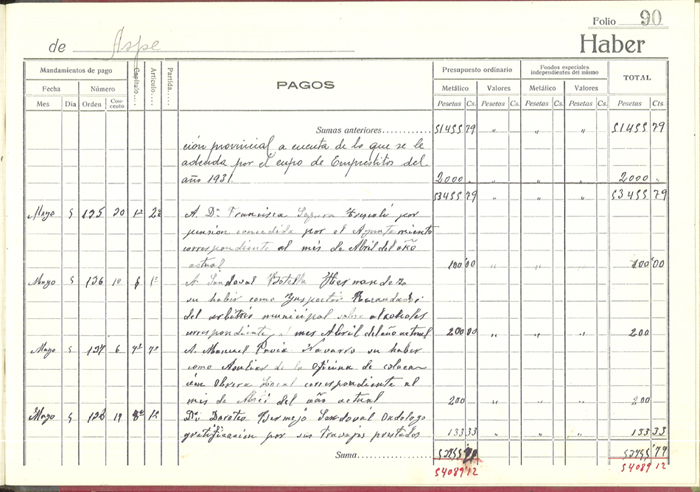 Folio 90
de Aspe Haber
Mandamientos de pago Capítulo.... Artículo.... Partida.... PAGOS Presupuesto ordinario Fondos especiales independientes del mismo TOTAL
Fecha Número Metálico Valores Metálico Valores
Mes Día Orden Concepto Pesetas Cs. Pesetas Cs. Pesetas Cs. Pesetas Cs. Pesetas Cts.
Sumas anteriores 51455 79 " " " 51455 79
ción provincial a cuenta de lo que se le
adeuda por el cupo de Empréstitos del
año 1931 2000 " " " 2000
53455 79 53455 79
Mayo 5 125 20 1º 2º A Dª Francisca por
pensión concedida por el Ayuntamiento
correspondiente al mes de Abril del año
actual 100 00 " " " 100 00
Mayo 5 126 10 6 1º A Sandoval Botella Hernandez
su haber como Inspector Recaudador
del arbitrio municipal sobre alcoholes
correspondiente al mes Abril del año actual 200 00 " " " 200
Mayo 5 127 6 7º 7º A Manuel Pavia Navarro su haber
como Auxiliar de la Oficina de coloca-
ción Obrera Local correspondiente al
mes de Abril del año actual 200 " " " 200
Mayo 5 128 19 8º 1º Dn Doroteo Bermejo Sandoval Odologo
gratificacion por sus trabajos prestados 133 33 " " " 133 33
Suma 53955 79 53955 79
54089 12 54089 12